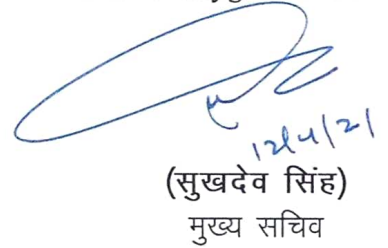 12/4/21
(सुखदेव सिंह)
मुख्य सचिव